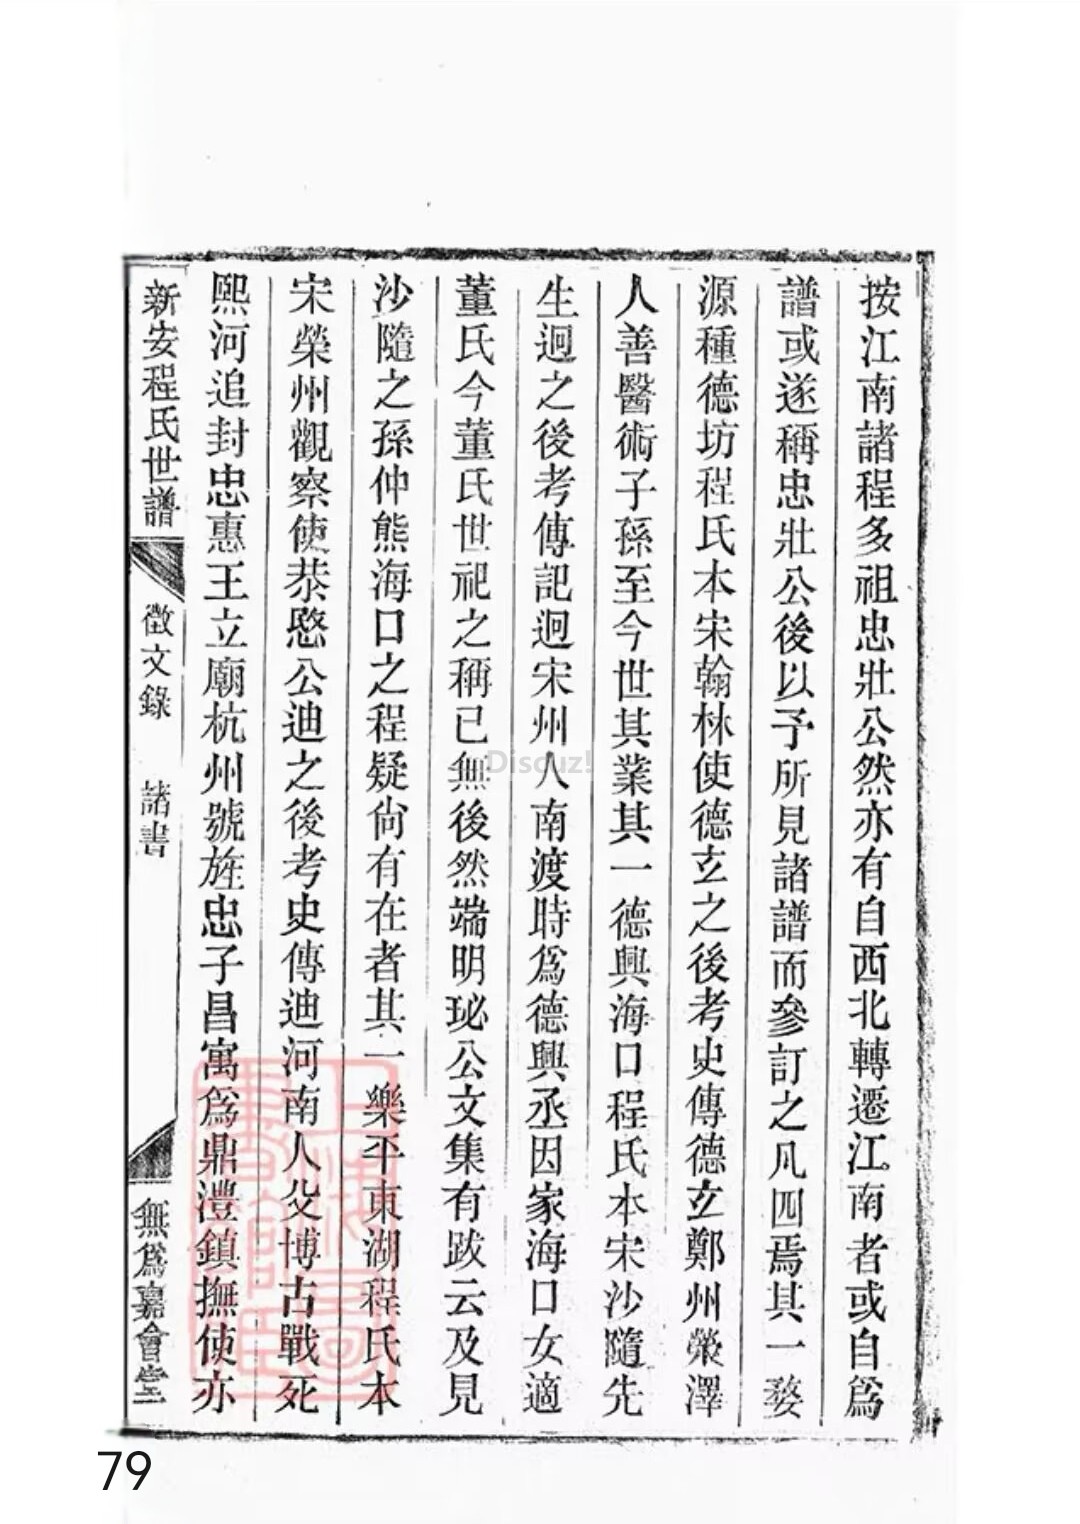 按江南諸程多祖忠壯公然亦有自西北轉遷江南者或自爲
譜或遂稱忠壯公後以予所見諸譜而參訂之凡四焉其一婺
源種德坊程氏本宋翰林使德玄之後考史傳德玄鄭州滎澤
人善醫術子孫至今世其業其一德興海口程氏本宋沙隨先
生迥之後考傳記迥宋州人南渡時爲德興丞因家海口女適
董氏今董氏世祀之稱已無後然端明珌公文集有跋云及見
沙隨之孫仲熊海口之程疑尙有在者其一樂平東湖程氏本
宋榮州觀察使恭愍公迪之後考史傳迪河南人父博古戰死
熙河追封忠惠王立廟杭州號旌忠子昌寓爲鼎澧鎮撫使亦
新安程氏世譜 徵文錄 諸書 無爲嘉會堂
Discuz!
79